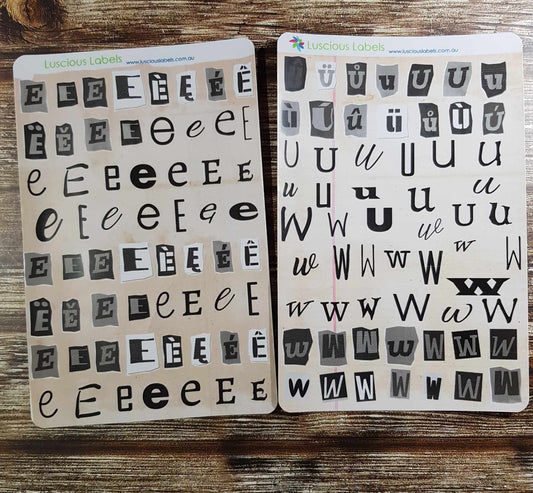 Luscious Labels www.lusciouslabels.com.au
E E E E È Ę É Ê
Ë Ě E E e e e E
e E E e e e E E
e E e e E E e e
E E E E È Ę É Ê
Ë Ě E E E e e E
E E E E È Ę É Ê
e E E e e e E E
Luscious Labels www.lusciouslabels.com.au
U ü ů u U U u
Ù Ú û ü ů Ù Ú
U U u U U u u
u u u U u
W W U w U U
w W W w W w W
W
w w w W W w W
w W W w W W W
w W W W W w W